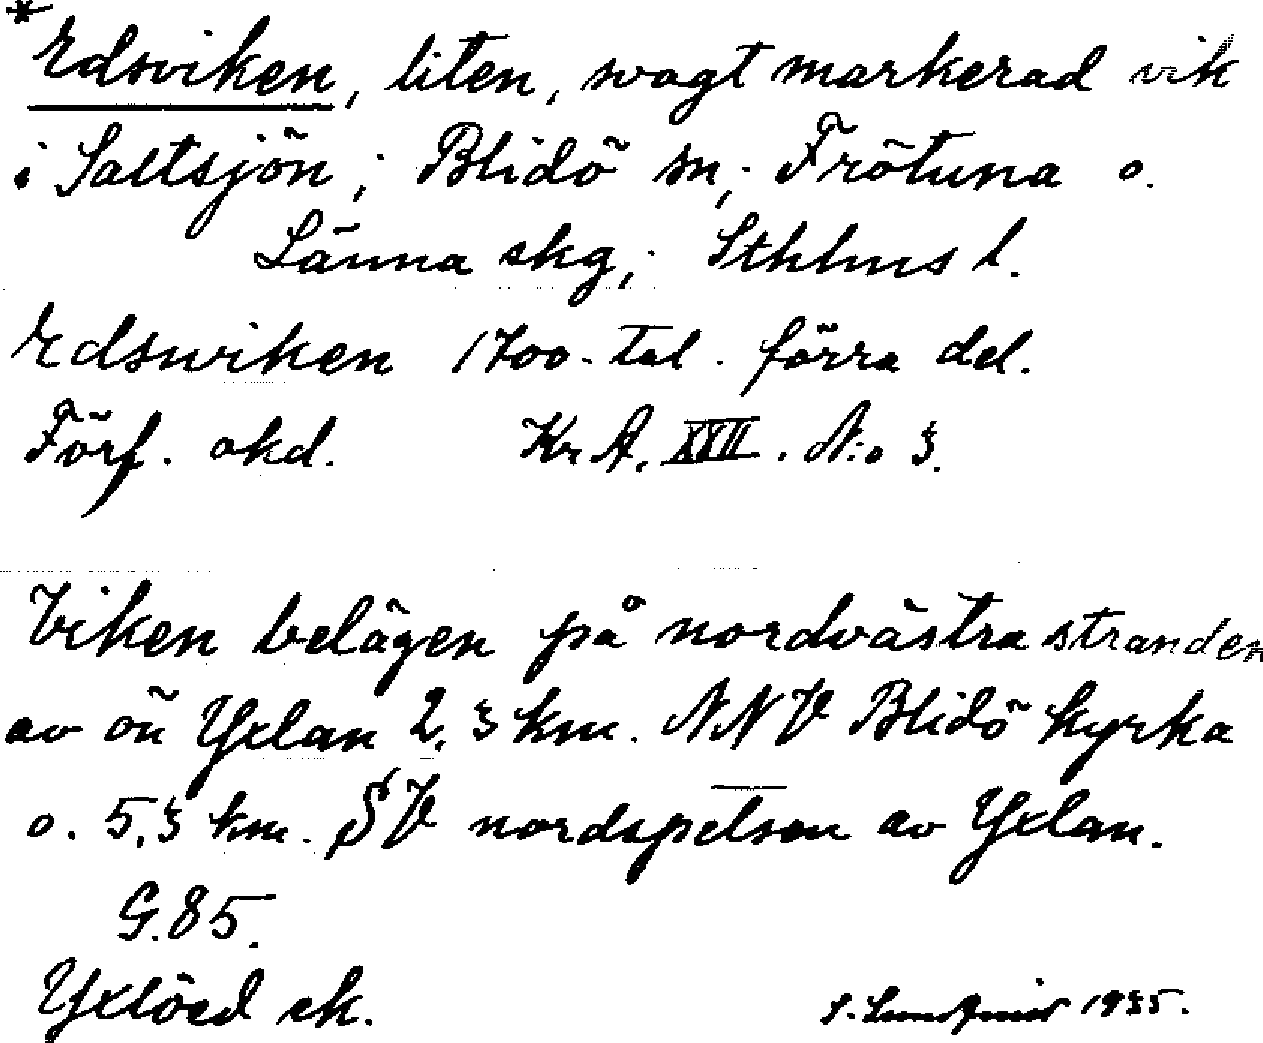 *Edsviken, liten, svagt markerad vik
i Saltsjön; Blidö sn; Frötuna o.
Länna skg; Sthlms l.
Edswiken 1700-tal. förra del.
Förf. okd. Kr A. XVII. N:o 3.
Viken belägen på nordvästra stranden
av ön Yxlan 2,3 km. NNV Blidö kyrka
o. 5,3 km. SV nordspetsen av Yxlan.
G.85.
Yxlöed ek.
S. Lundqvist 1935.